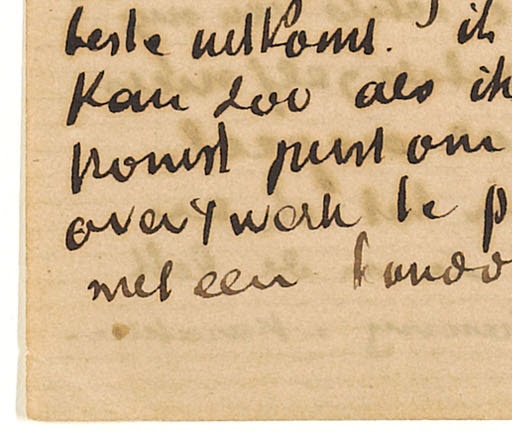 beste uitkomt. ik
Kan zoo als ik
komst juist om
over 't werk te p
met een